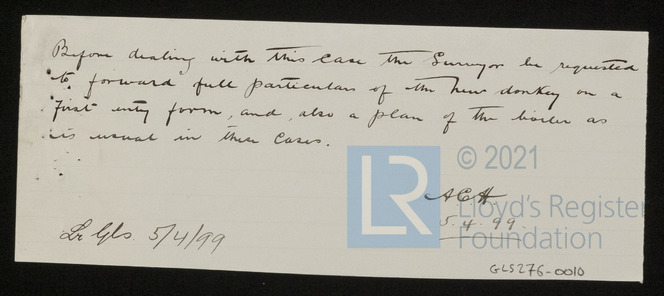 Before dealing with this case the Surveyor be requested
to forward full particulars of the new donkey on a
First entry form, and, also a plan of the boiler as
is usual in these cases.
© 2021
LR
Lloyd's Register
Foundation
ACH
5.4.99.
Lr Gls. 5/4/99
GLS276-0010